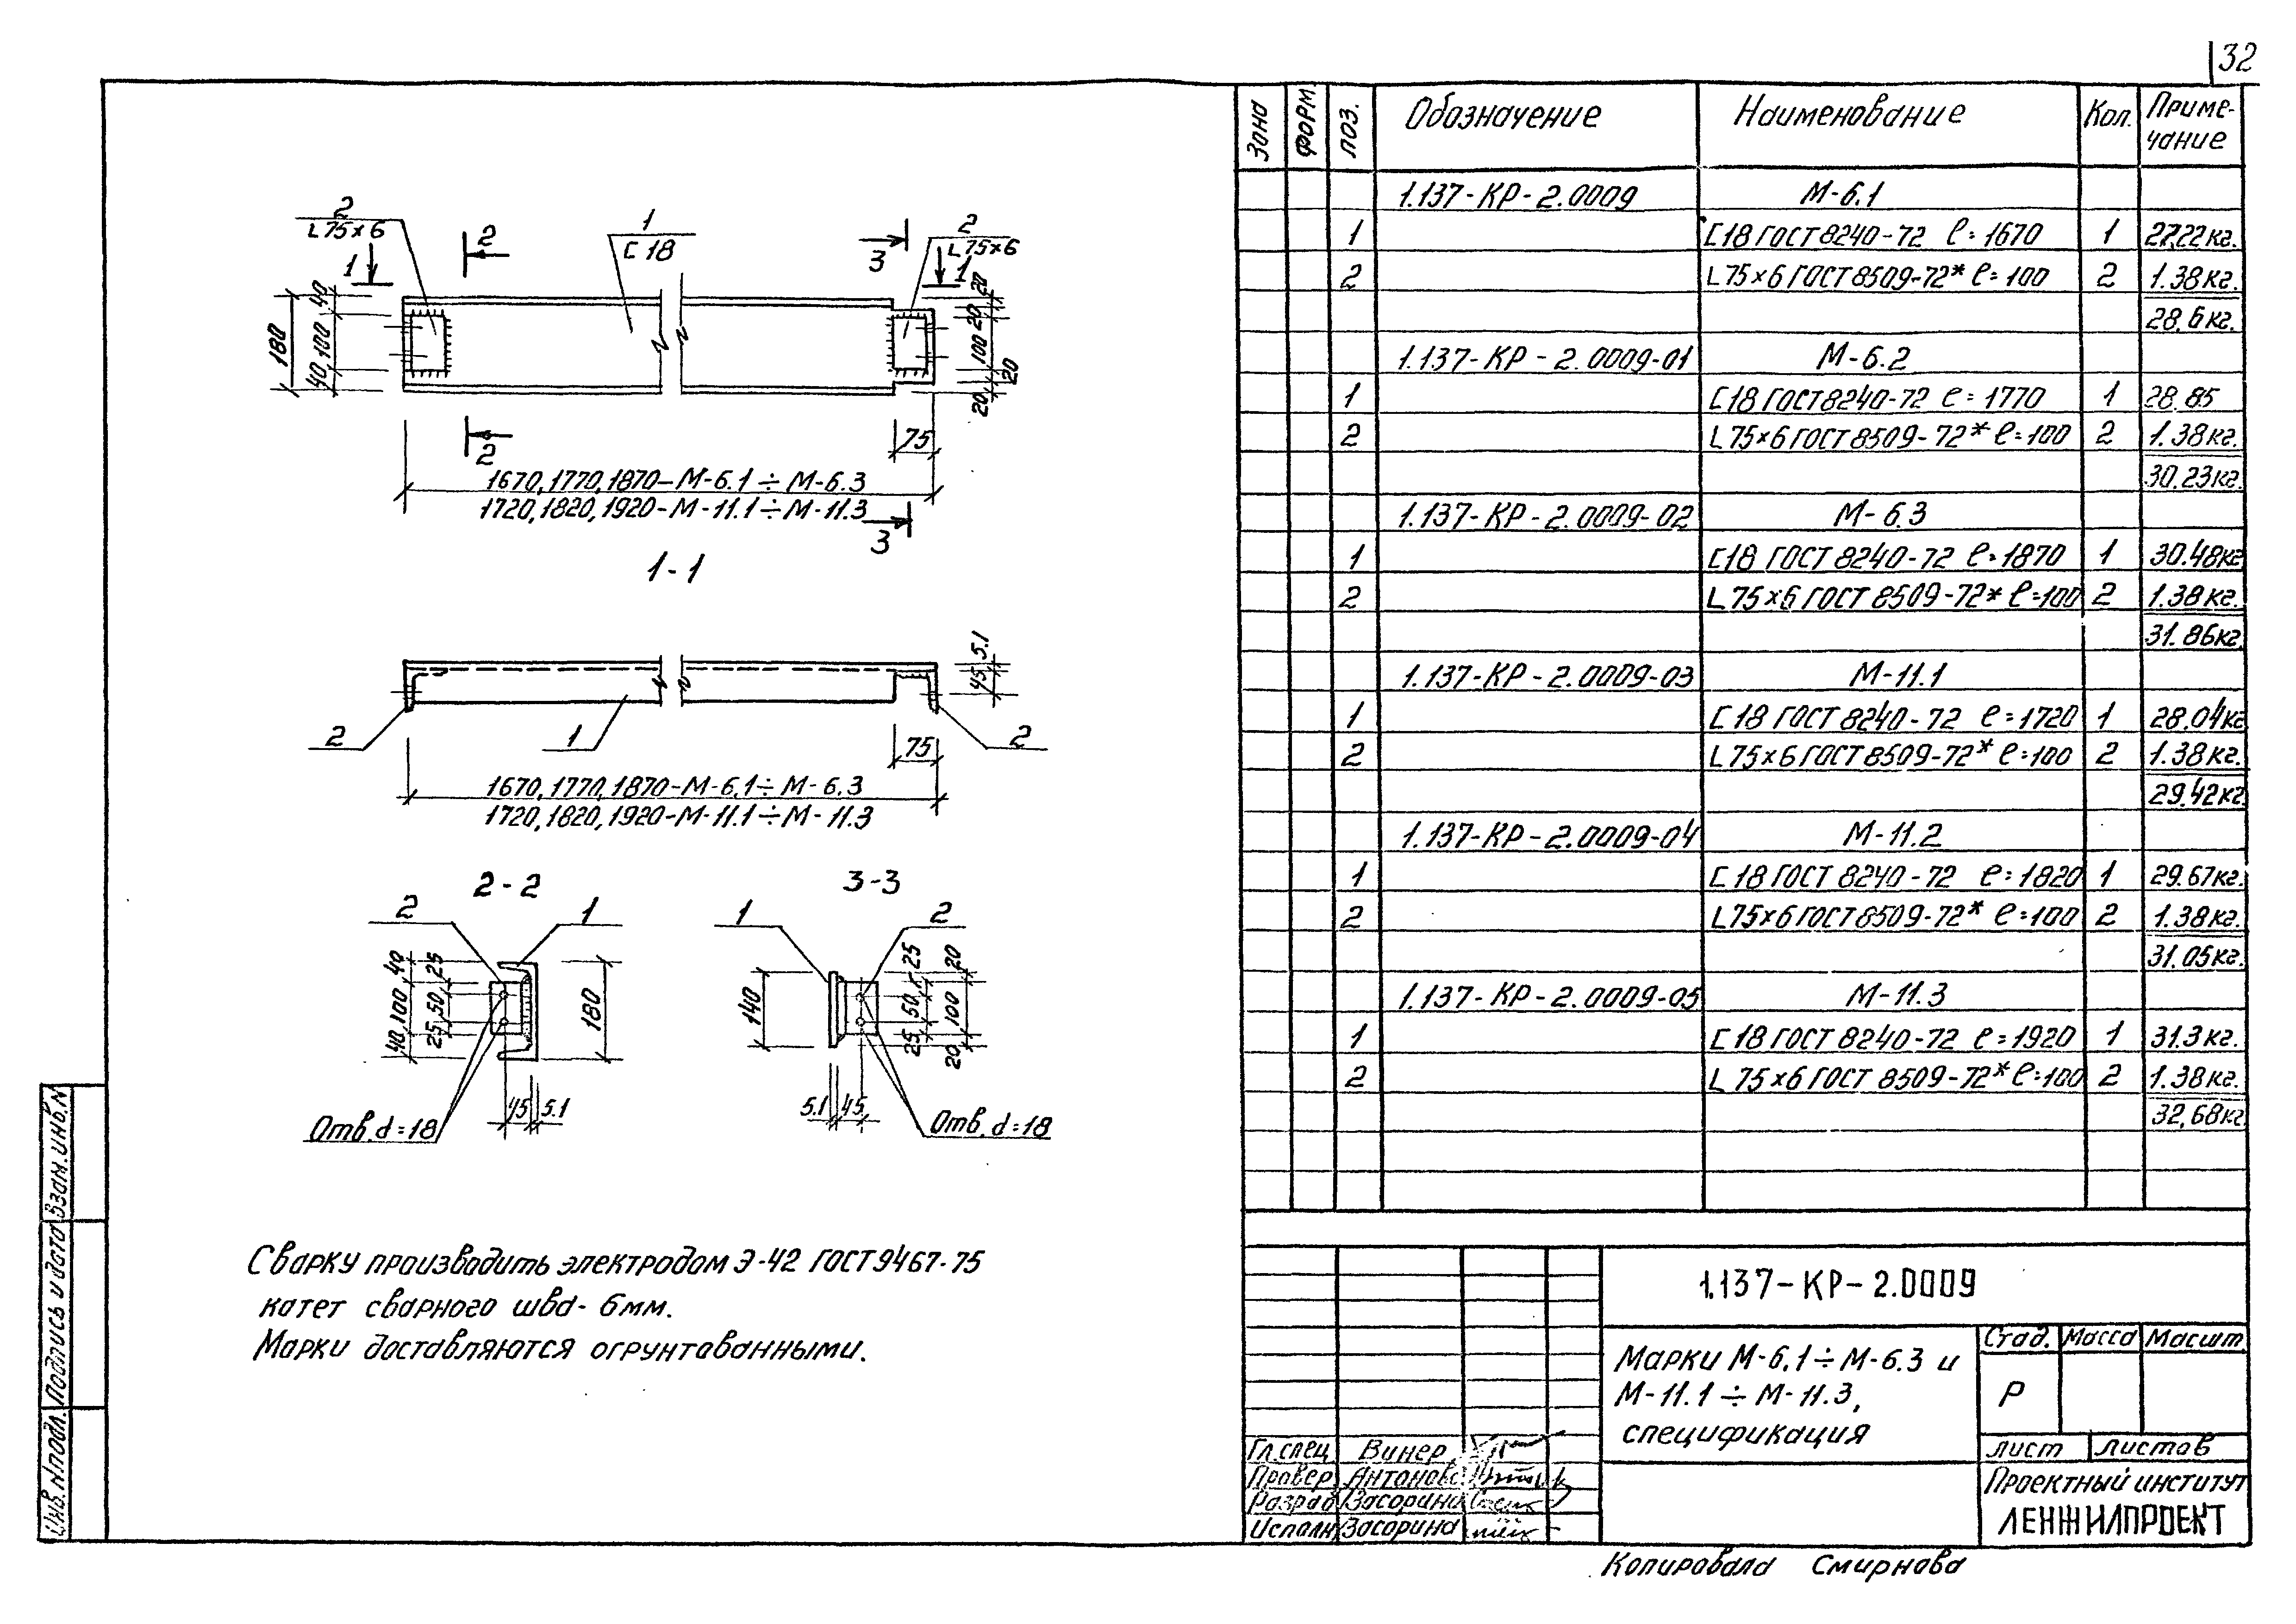 32
2
L75×6
1
2
1
С 18
3
2
L75×6
1
180
40
100
40
20
20
100
20
20
2
75
1670, 1770, 1870-М-6.1÷М-6.3
1720, 1820, 1920-М-11.1÷М-11.3
3
1-1
5.1
45
2
1
75
2
1670, 1770, 1870-М-6.1÷М-6.3
1720, 1820, 1920-М-11.1÷М-11.3
2-2
3-3
2
1
1
2
40
100
40
25
50
25
180
140
25
50
25
20
100
20
45
5.1
5.1
45
Отв. d=18
Отв. d=18
Сварку производить электродом Э-42 ГОСТ 9467-75
катет сварного шва- 6мм.
Марки доставляются огрунтованными.
Зона
Форм.
Поз.
Обозначение
Наименование
Кол.
Приме-
чание
1.137-КР-2.0009 М-6.1
1 [18 ГОСТ 8240-72 ℓ=1670 1 27.22 кг.
2 L75×6 ГОСТ 8509-72* ℓ=100 2 1.38 кг.
28,6 кг.
1.137-КР-2.0009-01 М-6.2
1 [18 ГОСТ 8240-72 ℓ=1770 1 28.85
2 L75×6 ГОСТ 8509-72* ℓ=100 2 1.38 кг.
30.23 кг.
1.137-КР-2.0009-02 М-6.3
1 [18 ГОСТ 8240-72 ℓ=1870 1 30.48 кг
2 L75×6 ГОСТ 8509-72* ℓ=100 2 1.38 кг.
31.86 кг.
1.137-КР-2.0009-03 М-11.1
1 [18 ГОСТ 8240-72 ℓ=1720 1 28.04 кг
2 L75×6 ГОСТ 8509-72* ℓ=100 2 1.38 кг.
29.42 кг.
1.137-КР-2.0009-04 М-11.2
1 [18 ГОСТ 8240-72 ℓ=1820 1 29.67 кг.
2 L75×6 ГОСТ 8509-72* ℓ=100 2 1.38 кг.
31.05 кг.
1.137-КР-2.0009-05 М-11.3
1 [18 ГОСТ 8240-72 ℓ=1920 1 31.3 кг.
2 L75×6 ГОСТ 8509-72* ℓ=100 2 1.38 кг.
32,68 кг.
1.137-КР-2.0009
Марки М-6.1÷М-6.3 и
М-11.1÷М-11.3,
спецификация
Стад. Масса Масшт.
Р
Лист Листов
Проектный институт
ЛЕНЖИЛПРОЕКТ
Гл.спец Винер
Провер. Антонова
Разраб Засорина
Исполн Засорина
Инв.N подл. Подпись и дата Взам.инв.N
Копировала Смирнова